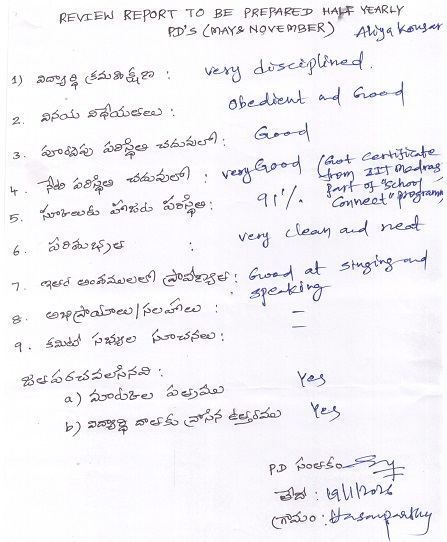 REVIEW REPORT TO BE PREPARED HALF YEARLY
P.D'S (MAY & NOVEMBER) Aliya Kousar
1) విద్యార్థి క్రమశిక్షణ : very disciplined.
2. వినయ విధేయతలు : Obedient and Good
3. పూర్వపు పరిస్థితి చదువులో : Good
4. నేటి పరిస్థితి చదువులో : very Good (Got certificate from IIT Madras part of "School Connect" Program)
5. స్కూలుకు హాజరు పరిస్థితి : 91%
6. పరిశుభ్రత : very clean and neat
7. ఇతర అంశములలో ప్రావీణ్యత : Good at singing and speaking
8. అభిప్రాయాలు/సలహాలు :
9. కమిటీ సభ్యుల సూచనలు :
జతపరచవలసినవి :
a) మార్కుల పత్రము Yes
b) విద్యార్థి దాతకు వ్రాసిన ఉత్తరము Yes
P.D సంతకం
తేది :
గ్రామం : Hasanparthy